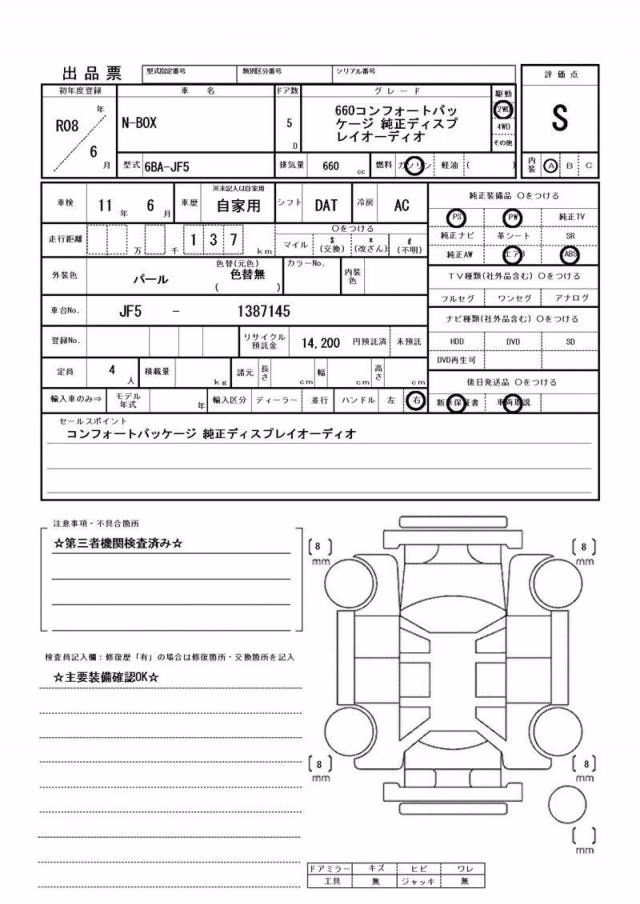 出品票 型式指定番号 類別区分番号 シリアル番号 評価点
初年度登録 車名 ドア数 グレード 駆動
R08 年 6 月 N-BOX 5 D
660コンフォートパッ
ケージ 純正ディスプ
レイオーディオ
2WD
4WD
その他
S
型式 6BA-JF5 排気量 660 cc 燃料 ガソリン 軽油 ( ) 内装 A B C
車検 11 年 6 月 車歴 ※未記入は自家用 自家用 シフト DAT 冷房 AC
走行距離 万 千 1 3 7 km 〇をつける
マイル $ (交換) x (改ざん) # (不明)
外装色 パール 色替(元色) 色替無 ( ) カラーNo. 内装色
車台No. JF5 - 1387145
登録No. リサイクル預託金 14,200 円預託済 未預託
定員 4 人 積載量 kg 諸元 長さ cm 幅 cm 高さ cm
輸入車のみ⇒ モデル年式 年 輸入区分 ディーラー 並行 ハンドル 左 右
純正装備品 〇をつける
PS PW 純正TV
純正ナビ 革シート SR
純正AW エアB ABS
TV種類(社外品含む) 〇をつける
フルセグ ワンセグ アナログ
ナビ種類(社外品含む) 〇をつける
HDD DVD SD
DVD再生可
後日発送品 〇をつける
新車保証書 車両取説
セールスポイント
コンフォートパッケージ 純正ディスプレイオーディオ
注意事項・不具合箇所
☆第三者機関検査済み☆
検査員記入欄：修復歴「有」の場合は修復箇所・交換箇所を記入
☆主要装備確認OK☆
〔 8 〕 〔 8 〕
mm mm
〔 8 〕 〔 8 〕
mm mm
〔 〕
mm
ドアミラー キズ ヒビ ワレ
工具 無 ジャッキ 無